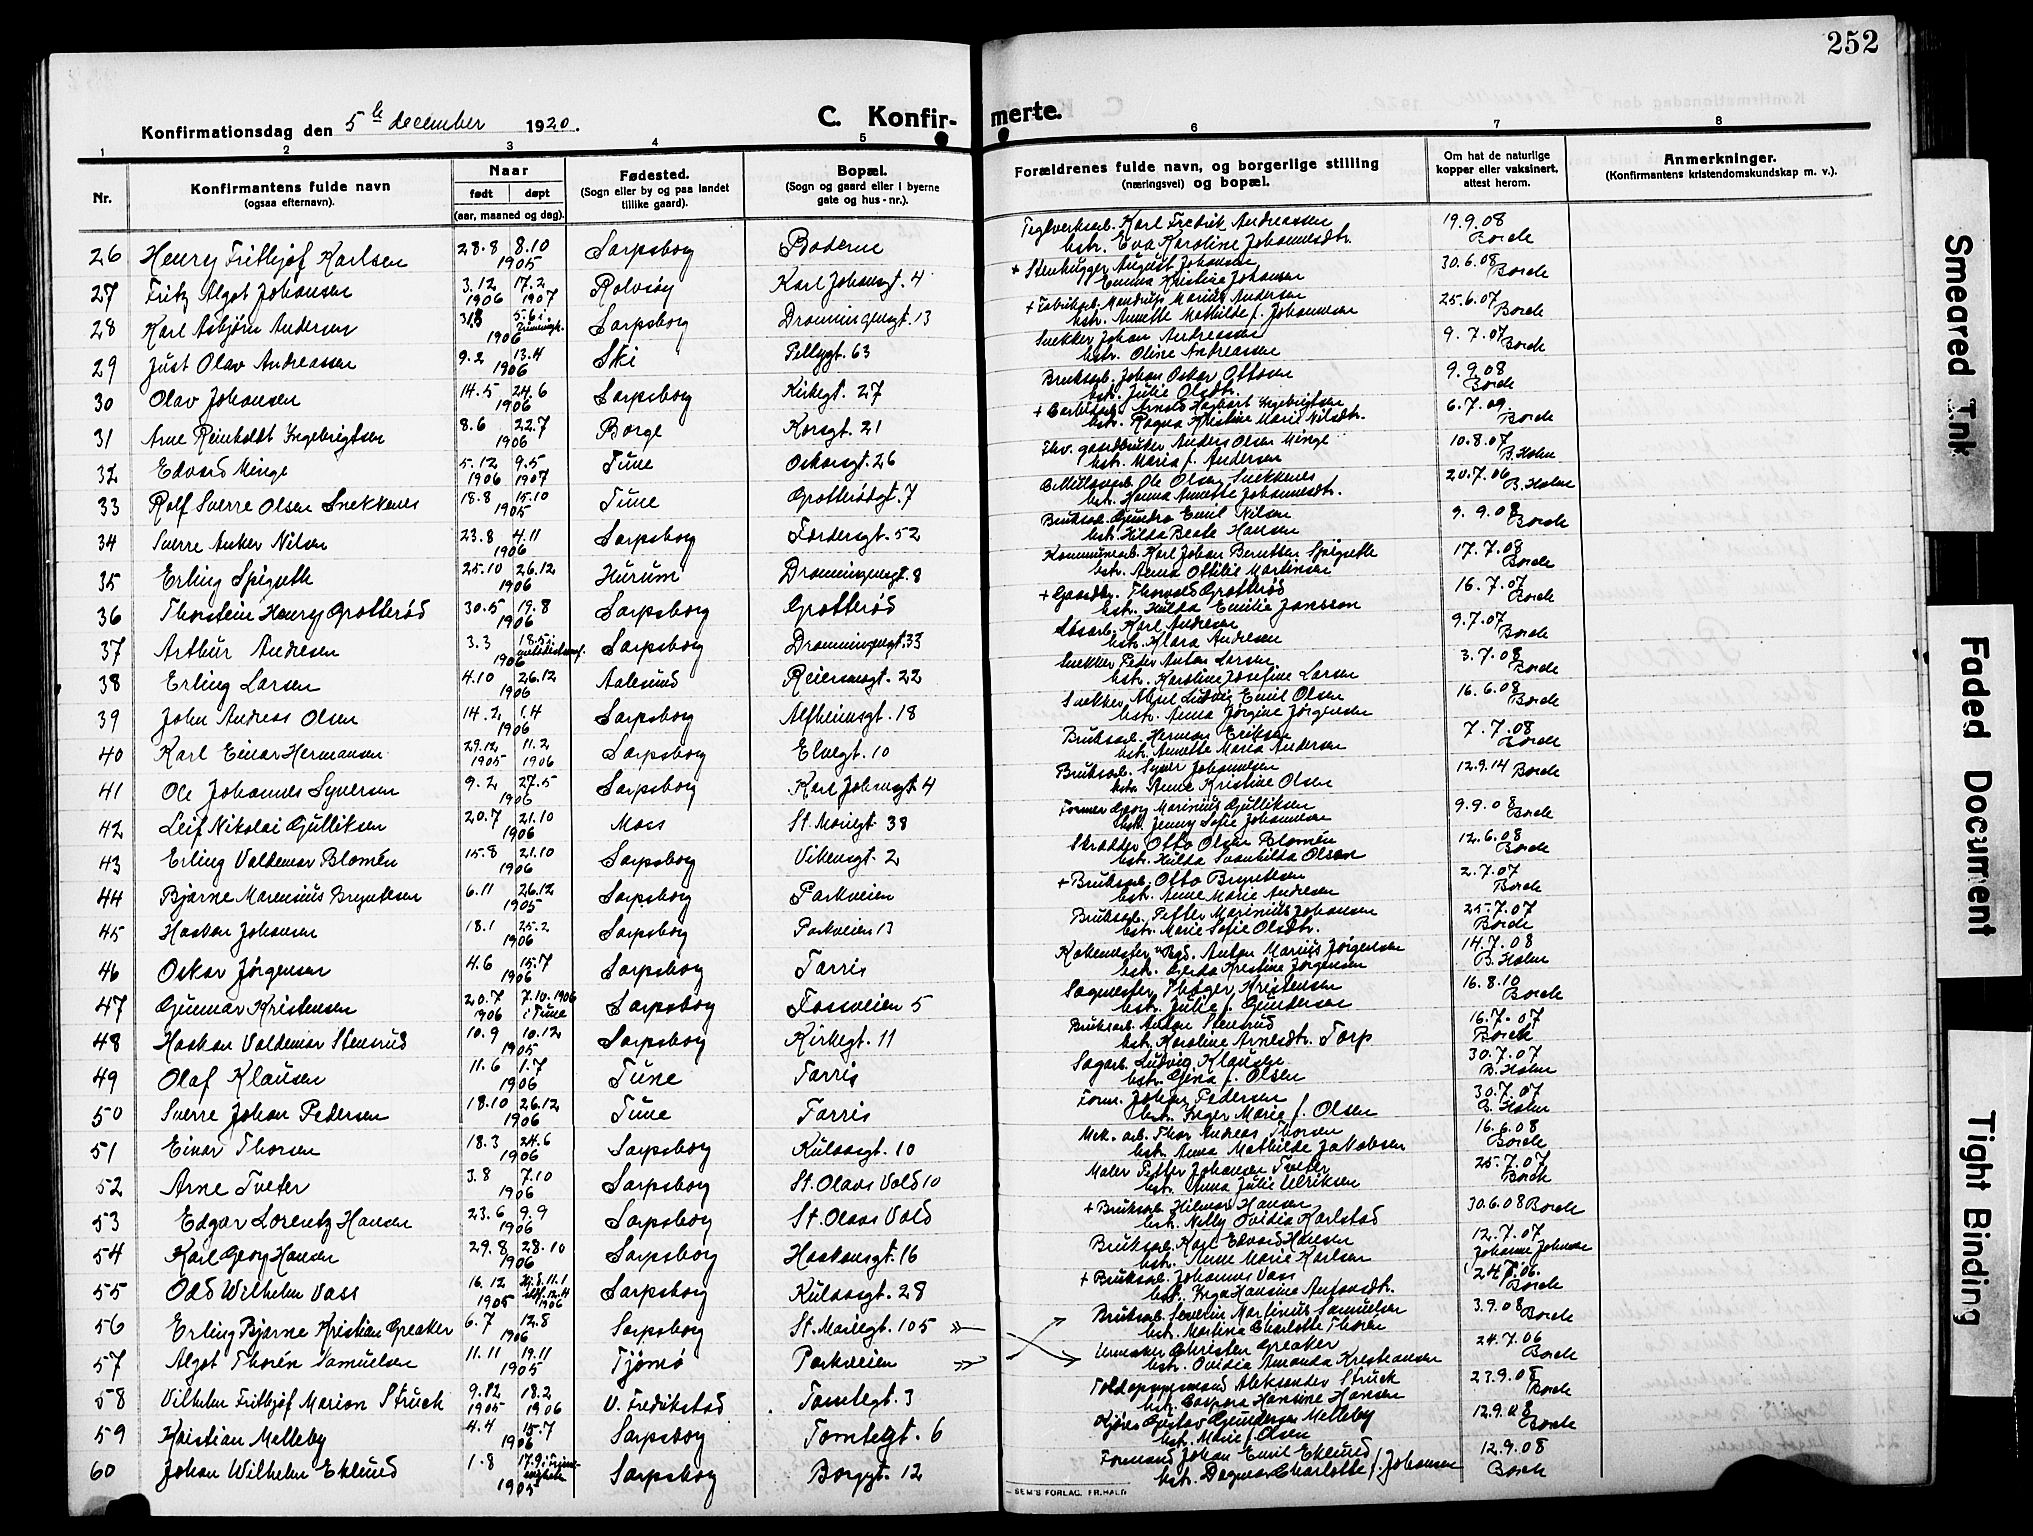 252
Konfirmationsdag den 5te december 1920.
C. Konfir- merte.
1 2 3 4 5 6 7 8
Nr.
Konfirmantens fulde navn
(ogsaa efternavn).
Naar
født døpt
(aar, maaned og dag).
Fødested.
(Sogn eller by og paa landet
tillike gaard).
Bopæl.
(Sogn og gaard eller i byerne
gate og hus-nr.).
Forældrenes fulde navn, og borgerlige stilling
(næringsvei) og bopæl.
Om hat de naturlige
kopper eller vaksinert,
attest herom.
Anmerkninger.
(Konfirmantens kristendomskundskap m. v.).
26 Henry Frithjof Karlsen 28.8 8.10 1905 Sarpsborg Boderne Teglverksarb. Karl Fredrik Andreassen 19.9.08
hstr. Eva Karoline Johannesdtr. Borch
27 Fritz Algot Johansen 3.12 1906 17.2 1907 Rolvsøy Karl Johansgt. 4 + Stenhugger August Johansen 30.6.08 Borch
Emma Kristine Johansen
28 Karl Asbjørn Andersen 31.3 5.6 1906 Sarpsborg Dronningensgt. 13 + Fabrikarb. Mandrup Marius Andersen 25.6.07 Borch
hstr. Annette Mathilde f. Johannesen
29 Just Olav Andreassen 9.2 13.4 1906 Ski Pellygt. 63 Snekker Johan Andreassen 9.7.07 Borch
hstr. Oline Andreassen
30 Olav Johansen 14.5 24.6 1906 Sarpsborg Kirkegt. 27 Bruksarb. Johan Oskar Ottosen 9.9.08 Borch
hstr. Julie Olsdtr.
31 Arne Reinholdt Yngebrigtsen 8.6 22.7 1906 Borge Korsgt. 21 + Arnold Hagbart Yngebrigtsen 6.7.09 Borch
hstr. Ragna Kristine Marie Nilsdtr.
32 Edvard Minge 5.12 1906 9.5 1907 Tune Oskarsgt. 26 Fhv. gaardbruker Anders Olsen Minge 10.8.07 B. Holm
hstr. Maria f. Andersen
33 Rolf Sverre Olsen Snekkenes 18.8 15.10 1905 Tune Grotterødgt. 7 Ole Olsen Snekkenes 20.7.06 B. Holm
hstr. Hanna Annette Johannesdtr.
34 Sverre Anker Nilsen 23.8 4.11 1906 Sarpsborg Tordersgt. 52 Bruksarb. Gundro Emil Nilsen 9.9.08 Borch
hstr. Hilda Beate Hansen
35 Erling Spigseth 25.10 26.12 1906 Hurum Dronningensgt. 8 Kommunearb. Karl Johan Berntsen Spigseth 17.7.08 Borch
hstr. Anna Ottilie Martinsen
36 Thorstein Henry Grotterød 30.5 19.8 1906 Sarpsborg Grotterød + Gaardbr. Thorvald Grotterød 16.7.07 Borch
hstr. Hulda Emilie Jansson
37 Arthur Andresen 3.3 18.5 i metodistsamf. 1906 Sarpsborg Dronningensgt. 33 Løsarb. Karl Andresen 9.7.07 Borch
hstr. Klara Andresen
38 Erling Larsen 4.10 26.12 1906 Aalesund Reiersensgt. 22 Snekker Peder Anton Larsen 3.7.08 Borch
hstr. Karoline Josefine Larsen
39 John Andreas Olsen 14.2 1.4 1906 Sarpsborg Alfheimsgt. 18 Snekker Aksel Ludvig Emil Olsen 16.6.08 Borch
hstr. Anna Jørgine Jørgensen
40 Karl Einar Hermansen 29.12 1905 11.2 1906 Sarpsborg Elvegt. 10 Bruksarb. Herman Eriksen 7.7.08 Borch
hstr. Annette Maria Andersen
41 Ole Johannes Syversen 9.2 27.5 1906 Sarpsborg Karl Johansgt. 4 Bruksarb. Syver Johannesen 12.9.14 Borch
hstr. Anne Kristine Olsen
42 Leif Nikolai Gulliksen 20.7 21.10 1906 Moss St. Mariegt. 38 Former Georg Marinius Gulliksen 9.9.08 Borch
hstr. Jenny Sofie Johannesen
43 Erling Valdemar Blomén 15.8 21.10 1906 Sarpsborg Vikensgt. 2 Skrædder Otto Olsen Blomén 12.6.08 Borch
hstr. Hilda Svanhilda Olsson
44 Bjarne Marensius Bryntesen 6.11 26.12 1905 Sarpsborg Parkveien + Bruksarb. Otto Bryntesen 2.7.07 Borch
hstr. Anne Marie Andresen
45 Haakon Johansen 18.1 25.2 1906 Sarpsborg Parkveien 13 Bruksarb. Petter Marinius Johansen 25.7.07 Borch
hstr. Marie Sofie Olsdtr.
46 Oskar Jørgensen 4.6 15.7 1906 Sarpsborg Tarris Anton Marius Jørgensen 14.7.08 B. Holm
hstr. Gerda Kristine Jørgensen
47 Gunnar Kristensen 20.7 1906 7.10.1906 i Tune Sarpsborg Fossveien 5 Sagmester Thøger Kristensen 16.8.10 Borch
hstr. Julie f. Gundersen
48 Haakon Valdemar Stensrud 10.9 10.12 1905 Sarpsborg Kirkegt. 11 Bruksarb. Anton Stensrud 16.7.07 Borch
hstr. Karoline Arnesdtr. Torp
49 Olaf Klausen 11.6 1.7 1906 Tune Tarris Sagarb. Ludvig Klausen 30.7.07 B. Holm
hstr. Gina f. Olsen
50 Sverre Johan Pedersen 18.10 26.12 1906 Tune Tarris Form. Johan Pedersen 30.7.07 B. Holm
hstr. Inger Marie f. Olsen
51 Einar Thorsen 18.3 24.6 1906 Sarpsborg Kulaasgt. 10 Mek. arb. Thor Andreas Thorsen 16.6.08 Borch
hstr. Anna Mathilde Jakobsen
52 Arne Tveter 3.8 7.10 1906 Sarpsborg St. Olavs Vold 10 Maler Petter Johansen Tveter 25.7.07 Borch
hstr. Anna Julie Ulriksen
53 Edgar Lorentz Hansen 23.6 9.9 1906 Sarpsborg St. Olavs Vold + Bruksarb. Hilmar Hansen 30.6.08 Borch
hstr. Nelly Ovidia Karlstad
54 Karl Georg Hansen 29.8 28.10 1906 Sarpsborg Haakonsgt. 16 Bruksarb. Karl Edvard Hansen 12.7.07
hstr. Anne Marie Karlsen
55 Odd Wilhelm Vass 16.12 1905 1906 Sarpsborg Kulaasgt. 28 + Bruksarb. Johannes Vass Borch
hstr. Inga Hansine Antonsdtr.
56 Erling Bjarne Kristian Greaker 6.7 12.8 1906 Sarpsborg St. Mariegt. 105 Bruksarb. Severin Martinius Samuelsen 3.9.08 Borch
hstr. Martina Charlotte Thorén
57 Algot Thorén Samuelsen 11.11 19.11 1905 Tjømø Parkveien Urmaker Christen Greaker 24.7.06 Borch
hstr. Ovidia Amanda Kristiansen
58 Vilhelm Frithjof Marion Struck 9.12 1905 18.2 1906 V. Fredrikstad Tomtegt. 3 Toldopsynsmand Aleksander Struck 23.9.08 Borch
hstr. Caspara Hansine Hansen
59 Kristian Melleby 4.4 15.7 1906 Sarpsborg Tomtegt. 6 Kjører Gustav Gundersen Melleby 12.9.08 Borch
hstr. Marie f. Olsen
60 Johan Wilhelm Eklund 1.8 17.9 1905 Sarpsborg Borggt. 12 Formand Johan Emil Eklund 12.9.08
hstr. Dagmar Charlotte f. Johansen Borch
SEM'S FORLAG, FR.HALD
Smeared Ink
Faded Document
Tight Binding